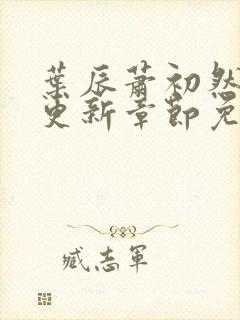 葉辰蕭初然
更新章節免
臧志軍